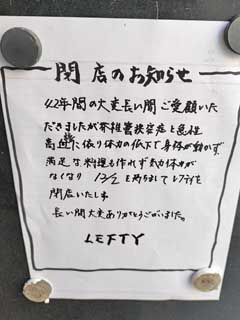 閉店のお知らせ
42年間の大変長い間ご愛顧いた
だきましたが脊椎管狭窄症と急性
高 に依り体力の低下で身体が動かず
満足な料理も作れず気力体力が
なくなり 12/2 を持ちまして レフティを
閉店いたします
長い間大変ありがとうございました。
LEFTY